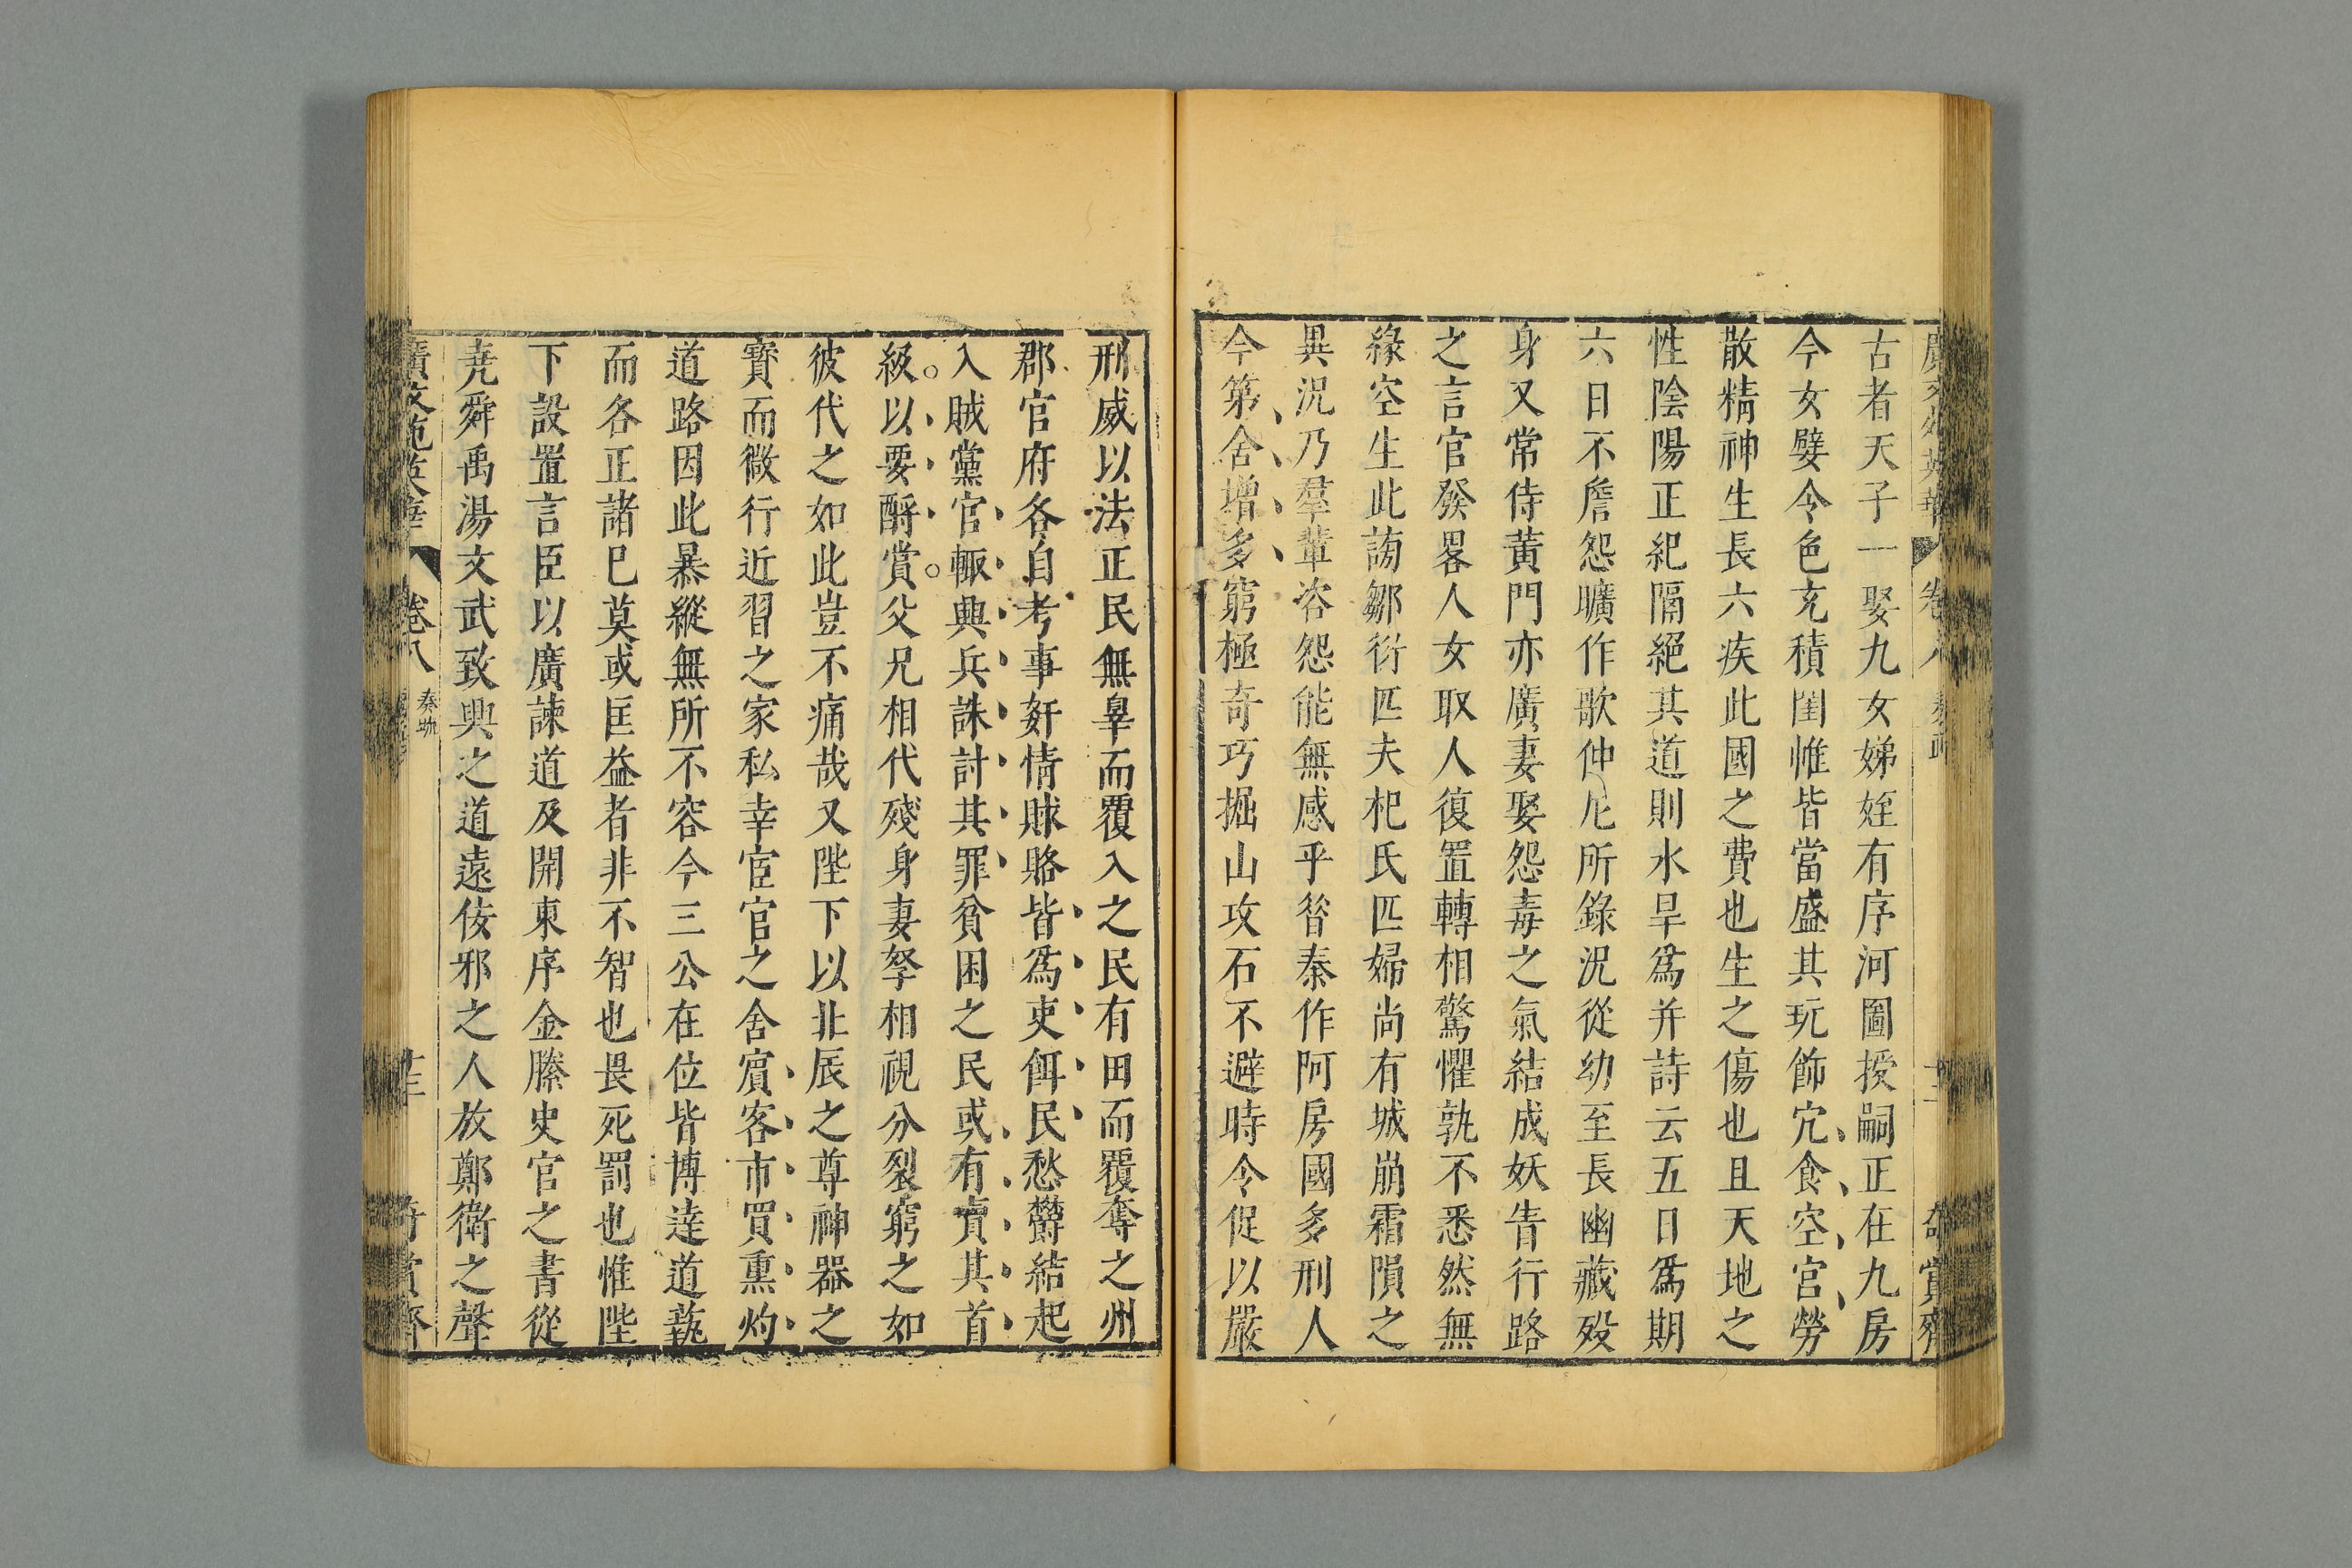 古者天子一娶九女娣姪有序河圖授嗣正在九房
今女嬖令色充積閨帷皆當盛其玩飾冗食空宮勞
散精神生長六疾此國之費也生之傷也且天地之
性陰陽正紀隔絕其道則水旱為并詩云五日為期
六日不詹怨曠作歌仲尼所錄況從幼至長幽藏歿
身又常侍黃門亦廣妻娶怨毒之氣結成妖眚行路
之言官發畧人女取人復置轉相驚懼孰不悉然無
緣空生此謗鄒衍匹夫杞氏匹婦尚有城崩霜隕之
異況乃羣輩咨怨能無感乎昝秦作阿房國多刑人
今第舍增多窮極奇巧掘山攻石不避時令促以嚴
刑威以法正民無辠而覆入之民有田而覆奪之州
郡官府各自考事姧情賕賂皆為吏餌民愁欝結起
入賊黨官輙興兵誅討其罪貧困之民或有賣其首
級以要酧賞父兄相代殘身妻孥相視分裂窮之如
彼代之如此豈不痛哉又陛下以北辰之尊神器之
寶而微行近習之家私幸宦官之舍賔客市買熏灼
道路因此暴縱無所不容今三公在位皆博達道蓺
而各正諸巳莫或匡益者非不智也畏死罰也惟陛
下設置言臣以廣諫道及開東序金縢史官之書從
堯舜禹湯文武致興之道遠佞邪之人放鄭衛之聲
廣文苑英華 卷八 十三 奇賞齋